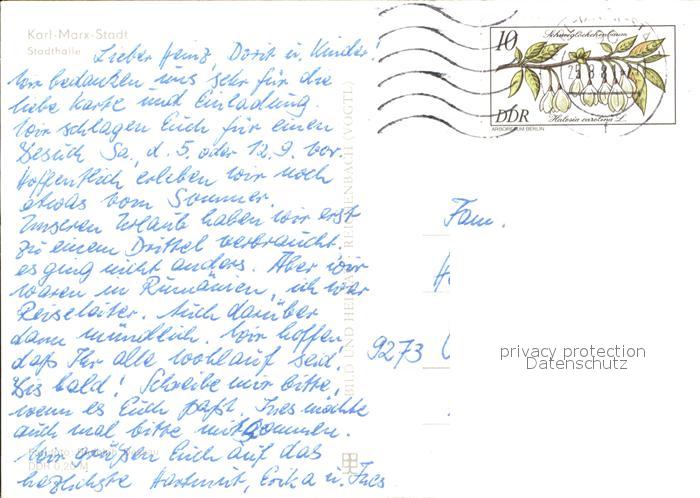 Karl-Marx-Stadt
Stadthalle
Lieber Heinz, Dorit u. Kinder.
Wir bedanken uns sehr für die
liebe Karte und Einladung.
Wir schlagen Euch für einen
Besuch Sa, d. 5. oder 12.9. vor.
Hoffentlich erleben wir noch
etwas vom Sommer.
Unseren Urlaub haben wir erst
zu einem Drittel verbraucht,
es ging nicht anders. Aber wir
waren in Rumänien, ich war
Reiseleiter. Auch darüber
dann mündlich. Wir hoffen,
daß Ihr alle wohlauf seid.
Bis bald! Schreibe mir bitte,
wenn es Euch paßt. Ines möchte
auch mal bitte mitkommen.
Wir grüßen Euch auf das
herzlichste Hartmut, Erika u. Ines
DDR 0,20 M
BILD UND HEIMAT REICHENBACH (VOGTL)
10
Schneeglöckchenbaum
Halesia carolina L.
DDR
ARBORETUM BERLIN
Fam.
9273
privacy protection
Datenschutz